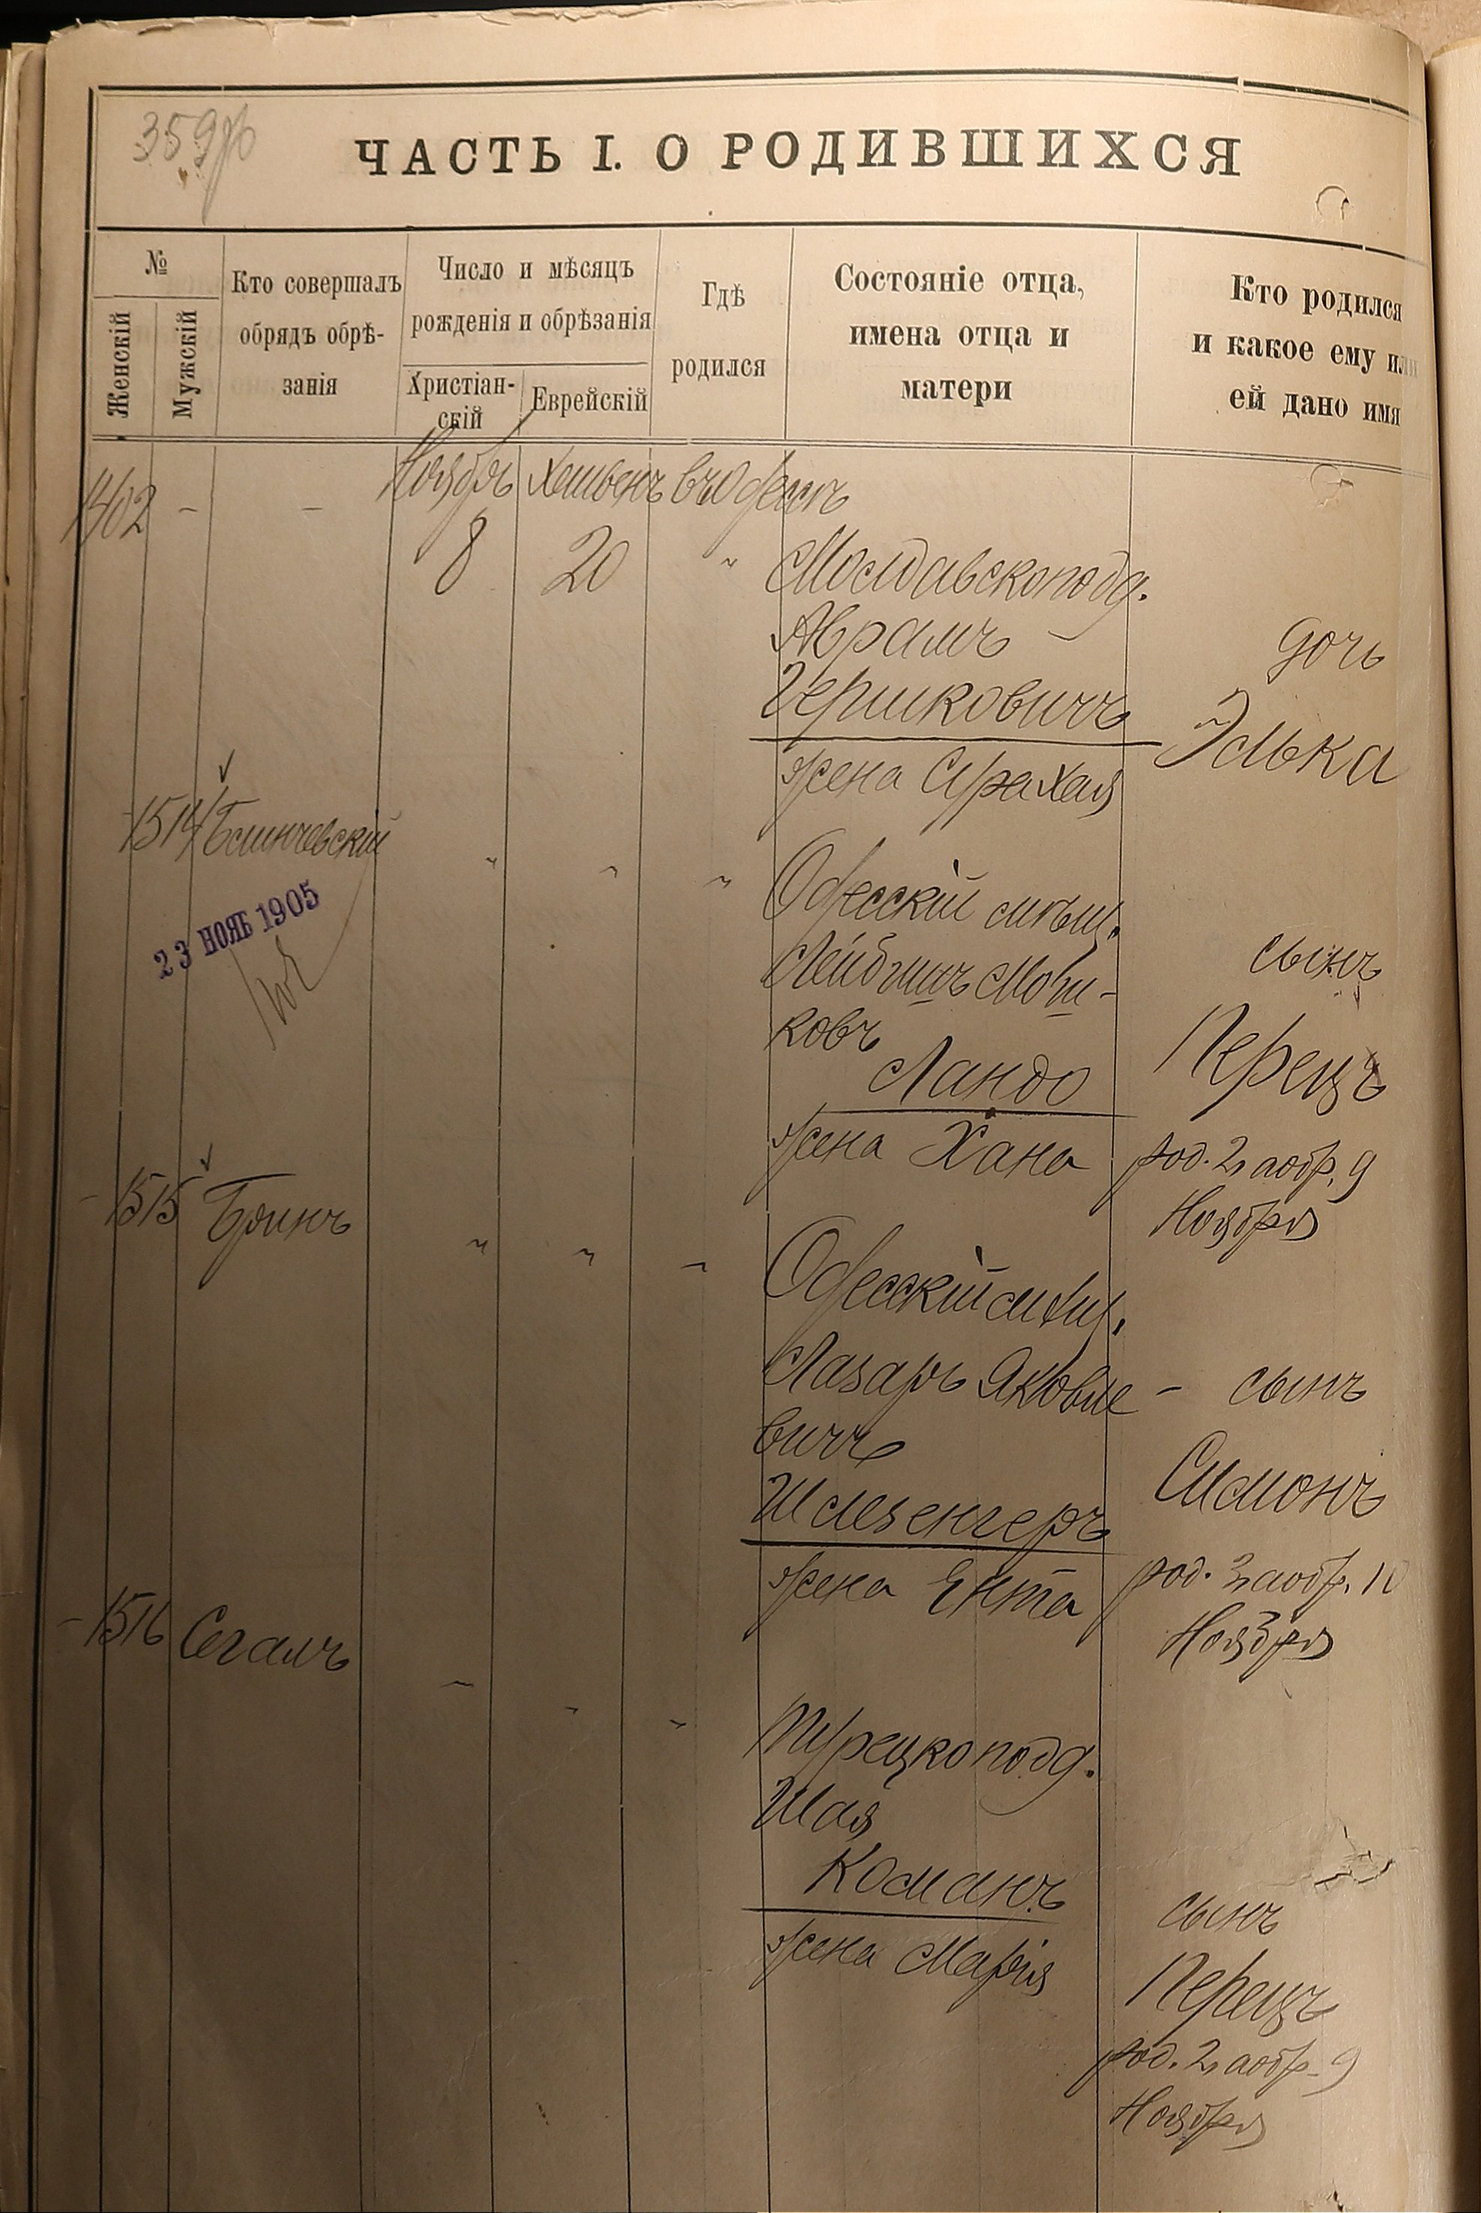 359 об
ЧАСТЬ I. О РОДИВШИХСЯ
№
Женскій
Мужскій
Кто совершалъ
обрядъ обрѣ-
занія
Число и мѣсяцъ
рожденія и обрѣзанія
Христіан-
скій
Еврейскій
Гдѣ
родился
Состояніе отца,
имена отца и
матери
Кто родился
и какое ему или
ей дано имя
Ноябрь Хешвенъ въ Одессѣ
1402 - - 8 20 " Молдавскопод.
Аврамъ -
Гершковичъ
жена Сура Хая
дочь
Элька
1514 " " "
23 НОЯБ 1905
Одесскій мѣщ.
Лейбишъ Мош-
ковъ
Ландо
жена Хана
сынъ
Перецъ
род. 2, а обр. 9
Ноября
- 1515 Бринъ " " "
Одесскій мѣщ.
Лазарь Яковле -
вичъ
Шлезенгеръ
жена Ента
сынъ
Симонъ
род. 3, а обр. 10
Ноября
- 1516 Сегалъ " " "
Турецкопод.
Шая
Команъ
жена Марія
сынъ
Перецъ
род. 2, а обр. 9
Ноября